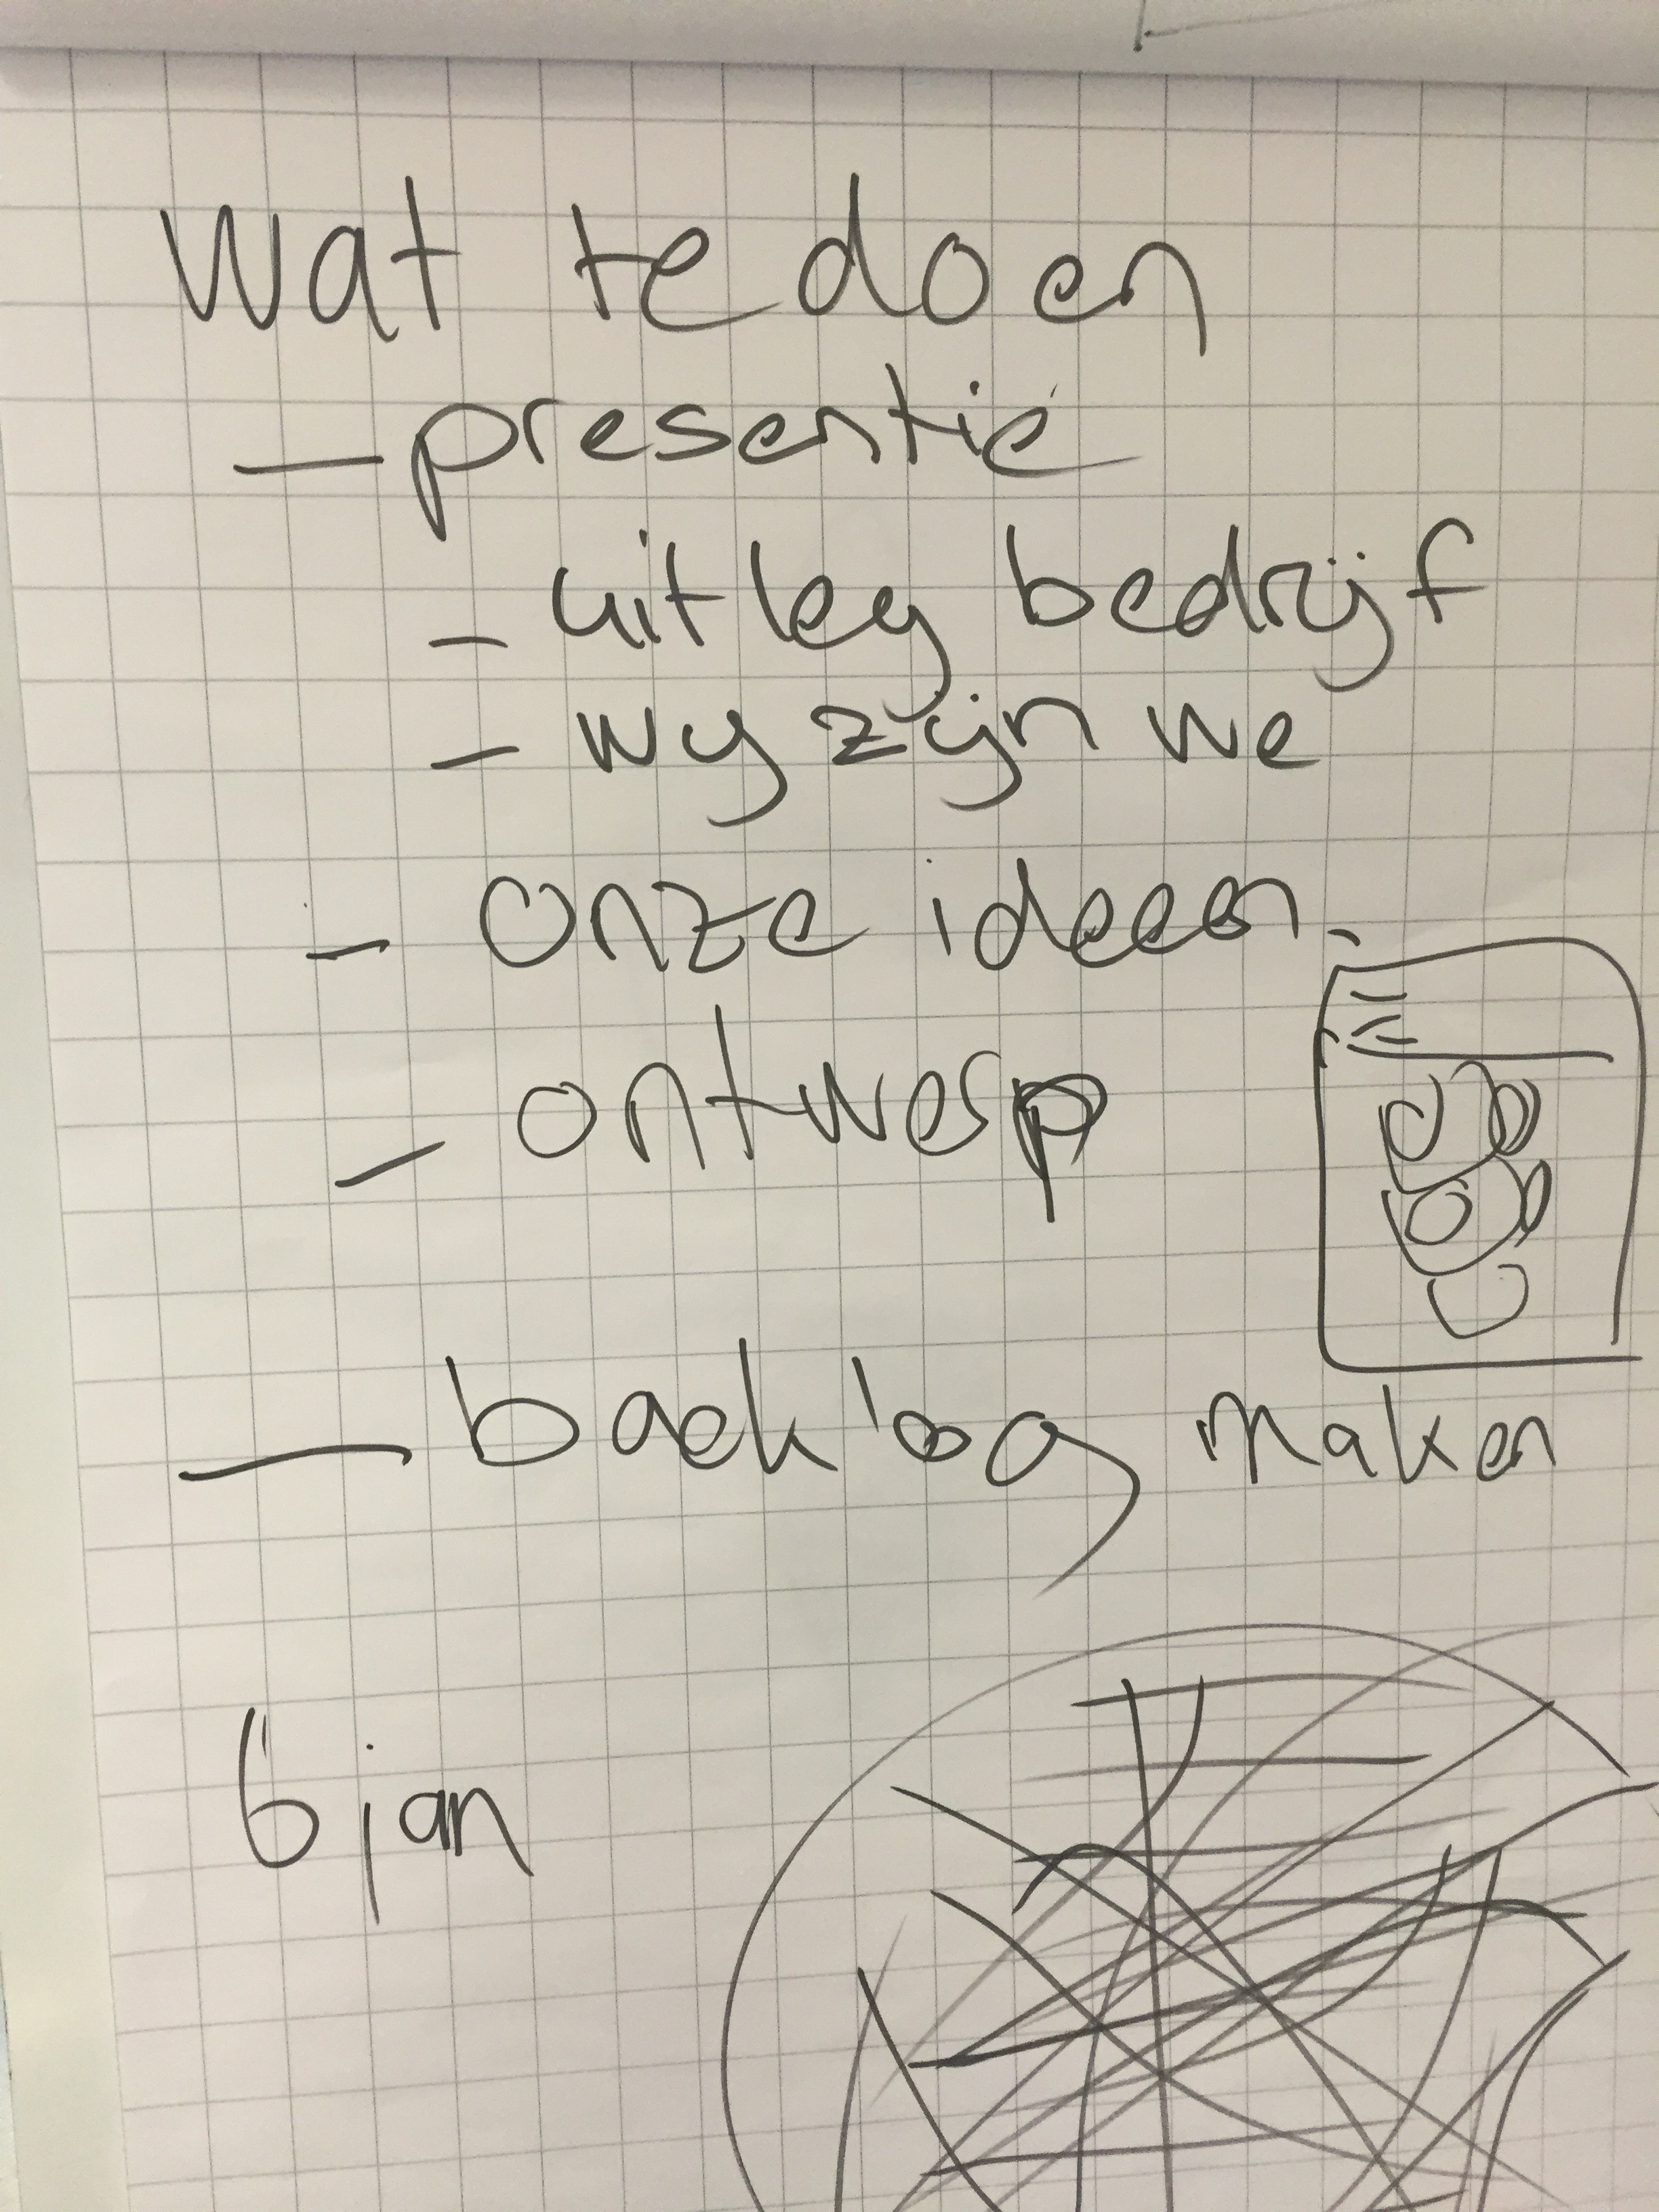 wat te doen
- presentie
- uitleg bedrijf
- wij zijn we
- onze ideeen.
- ontwerp
- backlog maken
6 jan